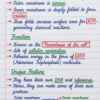 • Outer membrane is smooth.
• Inner membrane is deeply folded to form cristae.
• These folds increase surface area for generating chemical reactions.
Function
• Known as the "Powerhouse of the cell"
• Site of cellular respiration
• Release energy in the form of ATP (Adenosine Triphosphate) molecules.
Unique Feature
• They have their own DNA and ribosomes
• Hence, they can make some of their own proteins.